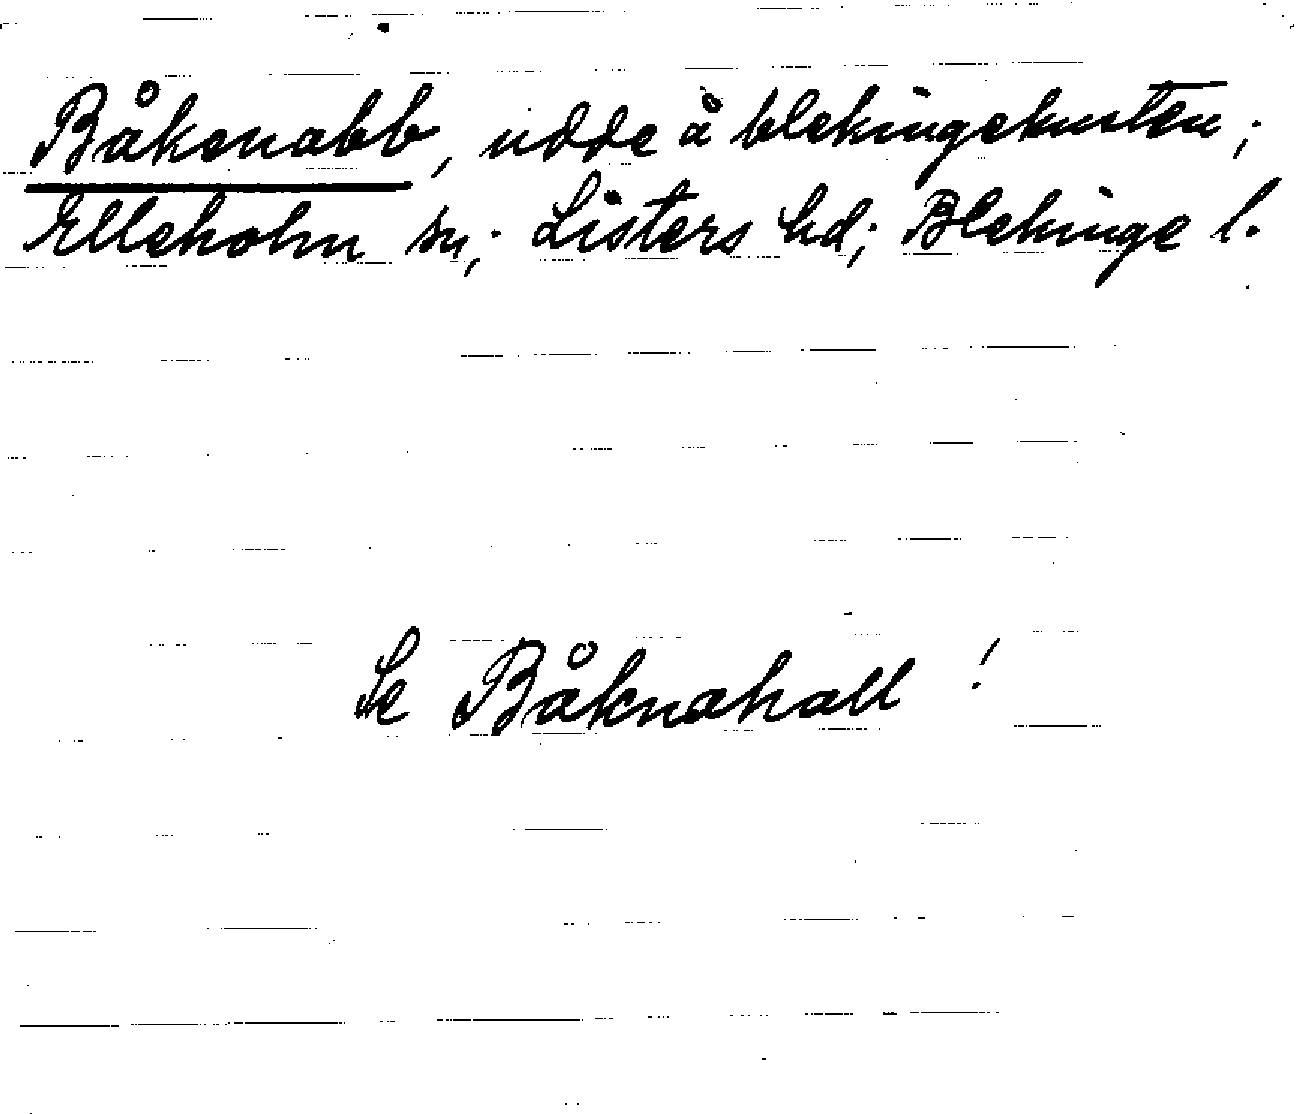 Båkenabb, udde å blekingekusten;
Elleholm sn; Listers hd; Blekinge l.
Se Båknahall!